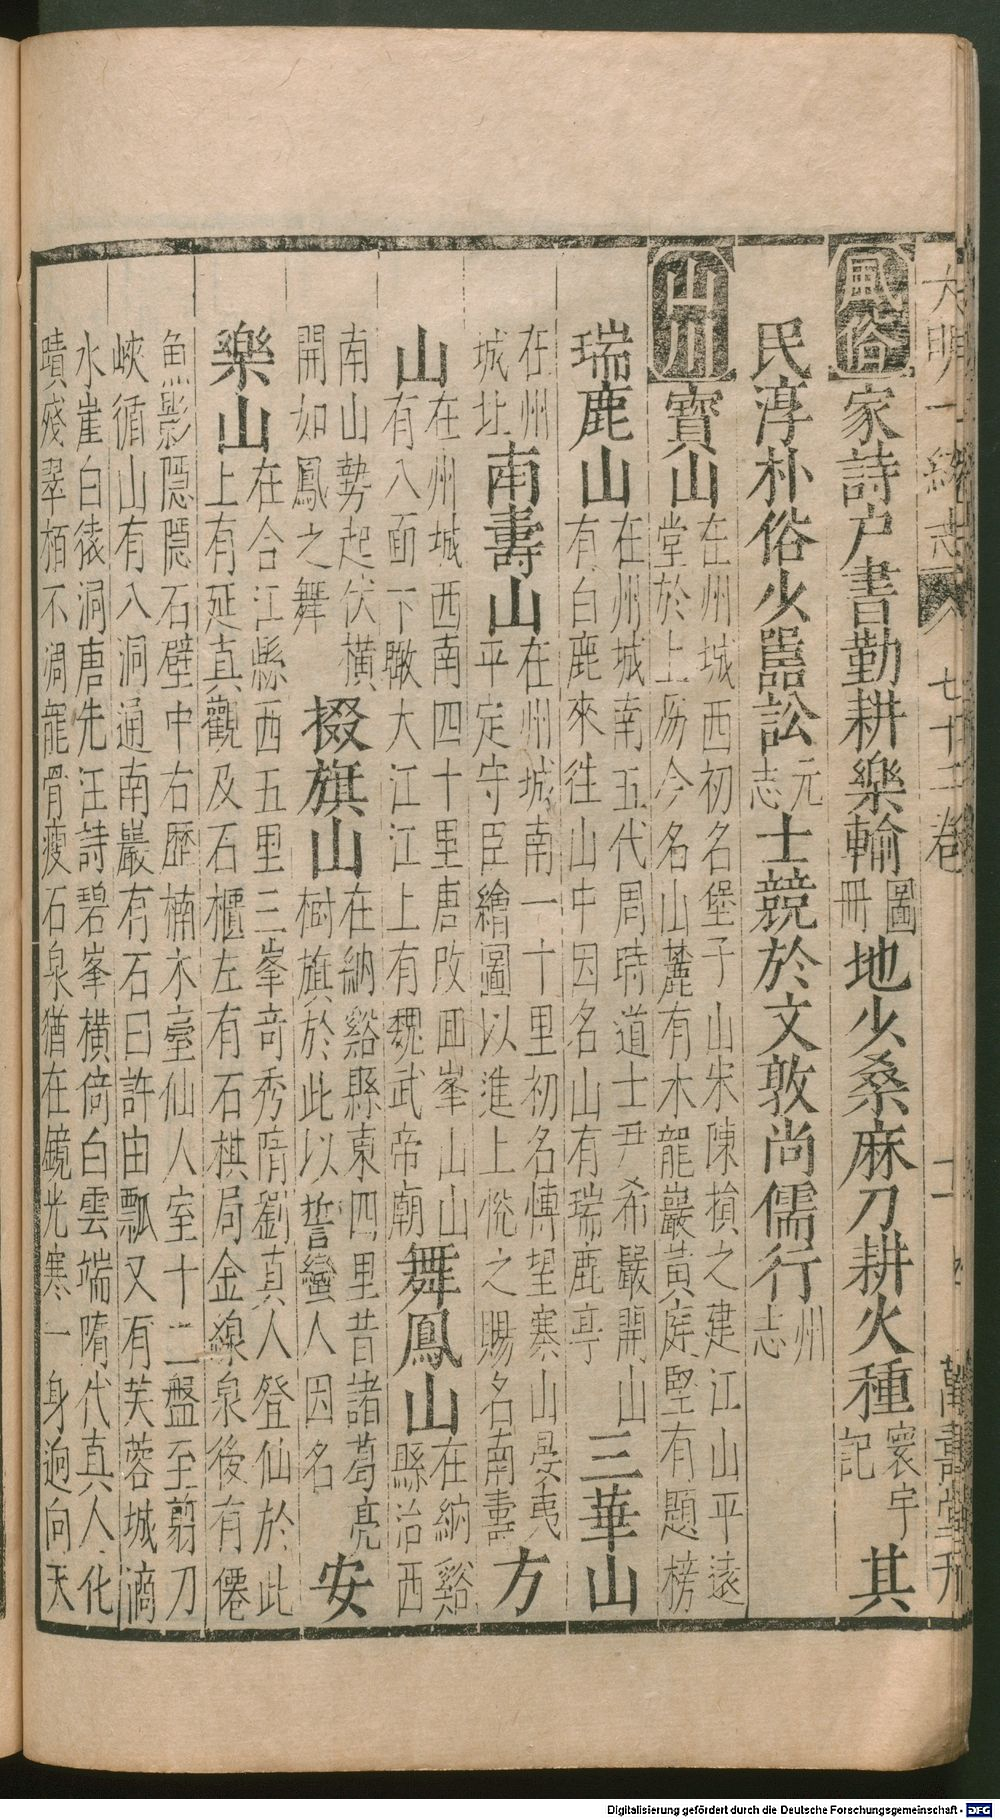 大明一統志 七十二卷 十一 萬壽堂刊
風俗 家詩户書勤耕樂輸 圖冊 地少桑麻刀耕火種 寰宇記 其
民淳朴俗少嚚訟 元志 士競於文敦尚儒行 州志
山川 寶山 在州城西初名堡子山宋陳損之建江山平遠
堂於上厉今名山麓有木龍巖黃庭堅有題榜
瑞鹿山 在州城南五代周時道士尹希嚴開山
有白鹿來往山中因名山有瑞鹿亭 三華山
在州城北 南壽山 在州城南一十里初名博望寨山晏夷
平定守臣繪圖以進上悅之賜名南壽 方
山 在州城西南四十里唐改囬峯山山
有八面下瞰大江江上有魏武帝廟 舞鳳山 在納谿縣治西
南山勢起伏橫
開如鳳之舞 掇旗山 在納谿縣東四里昔諸葛亮
樹旗於此以誓蠻人因名 安
樂山 在合江縣西五里三峯竒秀隋劉真人登仙於此
上有延真觀及石櫃左有石棋局金線泉後有僊
魚影隱隱石壁中右歷楠木臺仙人室十二盤至剪刀
峽循山有八洞通南巖有石曰許由瓢又有芙蓉城滴
水崖白猿洞唐先汪詩碧峯橫倚白雲端隋代真人化
蹟殘翠栢不凋龍骨瘦石泉猶在鏡光寒一身逈向天
Digitalisierung gefördert durch die Deutsche Forschungsgemeinschaft - DFG